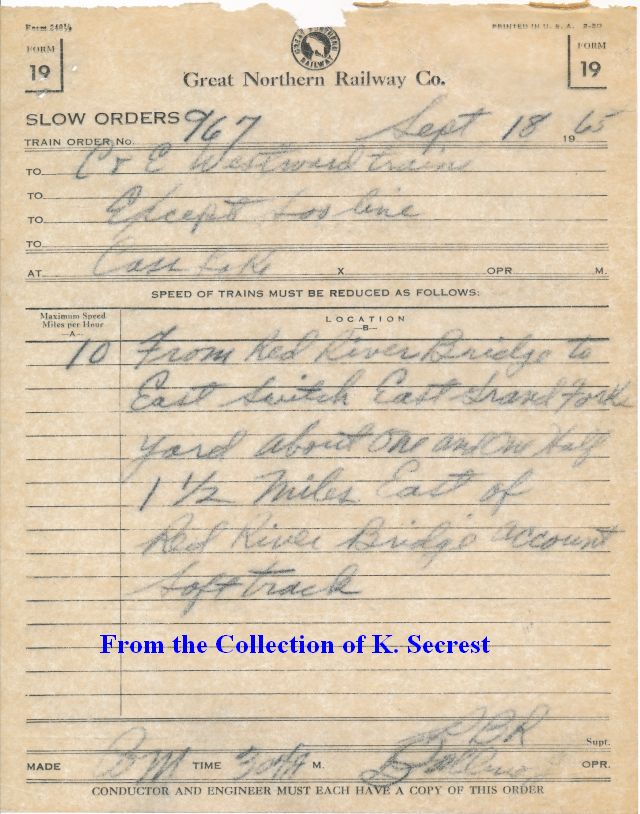 Form 249½
PRINTED IN U. S. A. 2-20
FORM
19
GREAT NORTHERN
RAILWAY
FORM
19
Great Northern Railway Co.
SLOW ORDERS
TRAIN ORDER No. 967 Sept 18 1965
TO C & E Westward trains
TO
TO Except Soo line
TO
AT Cass Lake X OPR M.
SPEED OF TRAINS MUST BE REDUCED AS FOLLOWS:
Maximum Speed
Miles per Hour
—A—
LOCATION
—B—
10 From Red River Bridge to
East Switch East Grand Forks
Yard about One and One Half
1 1/2 Miles East of
Red River Bridge account
Soft track
From the Collection of K. Secrest
Supt.
MADE TIME M. OPR.
CONDUCTOR AND ENGINEER MUST EACH HAVE A COPY OF THIS ORDER